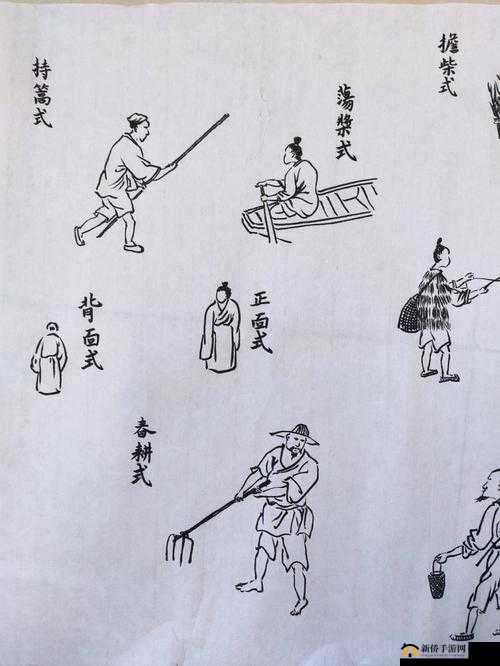 持篙式
蕩槳式
擔柴式
背面式
正面式
春耕式
新侨手游网